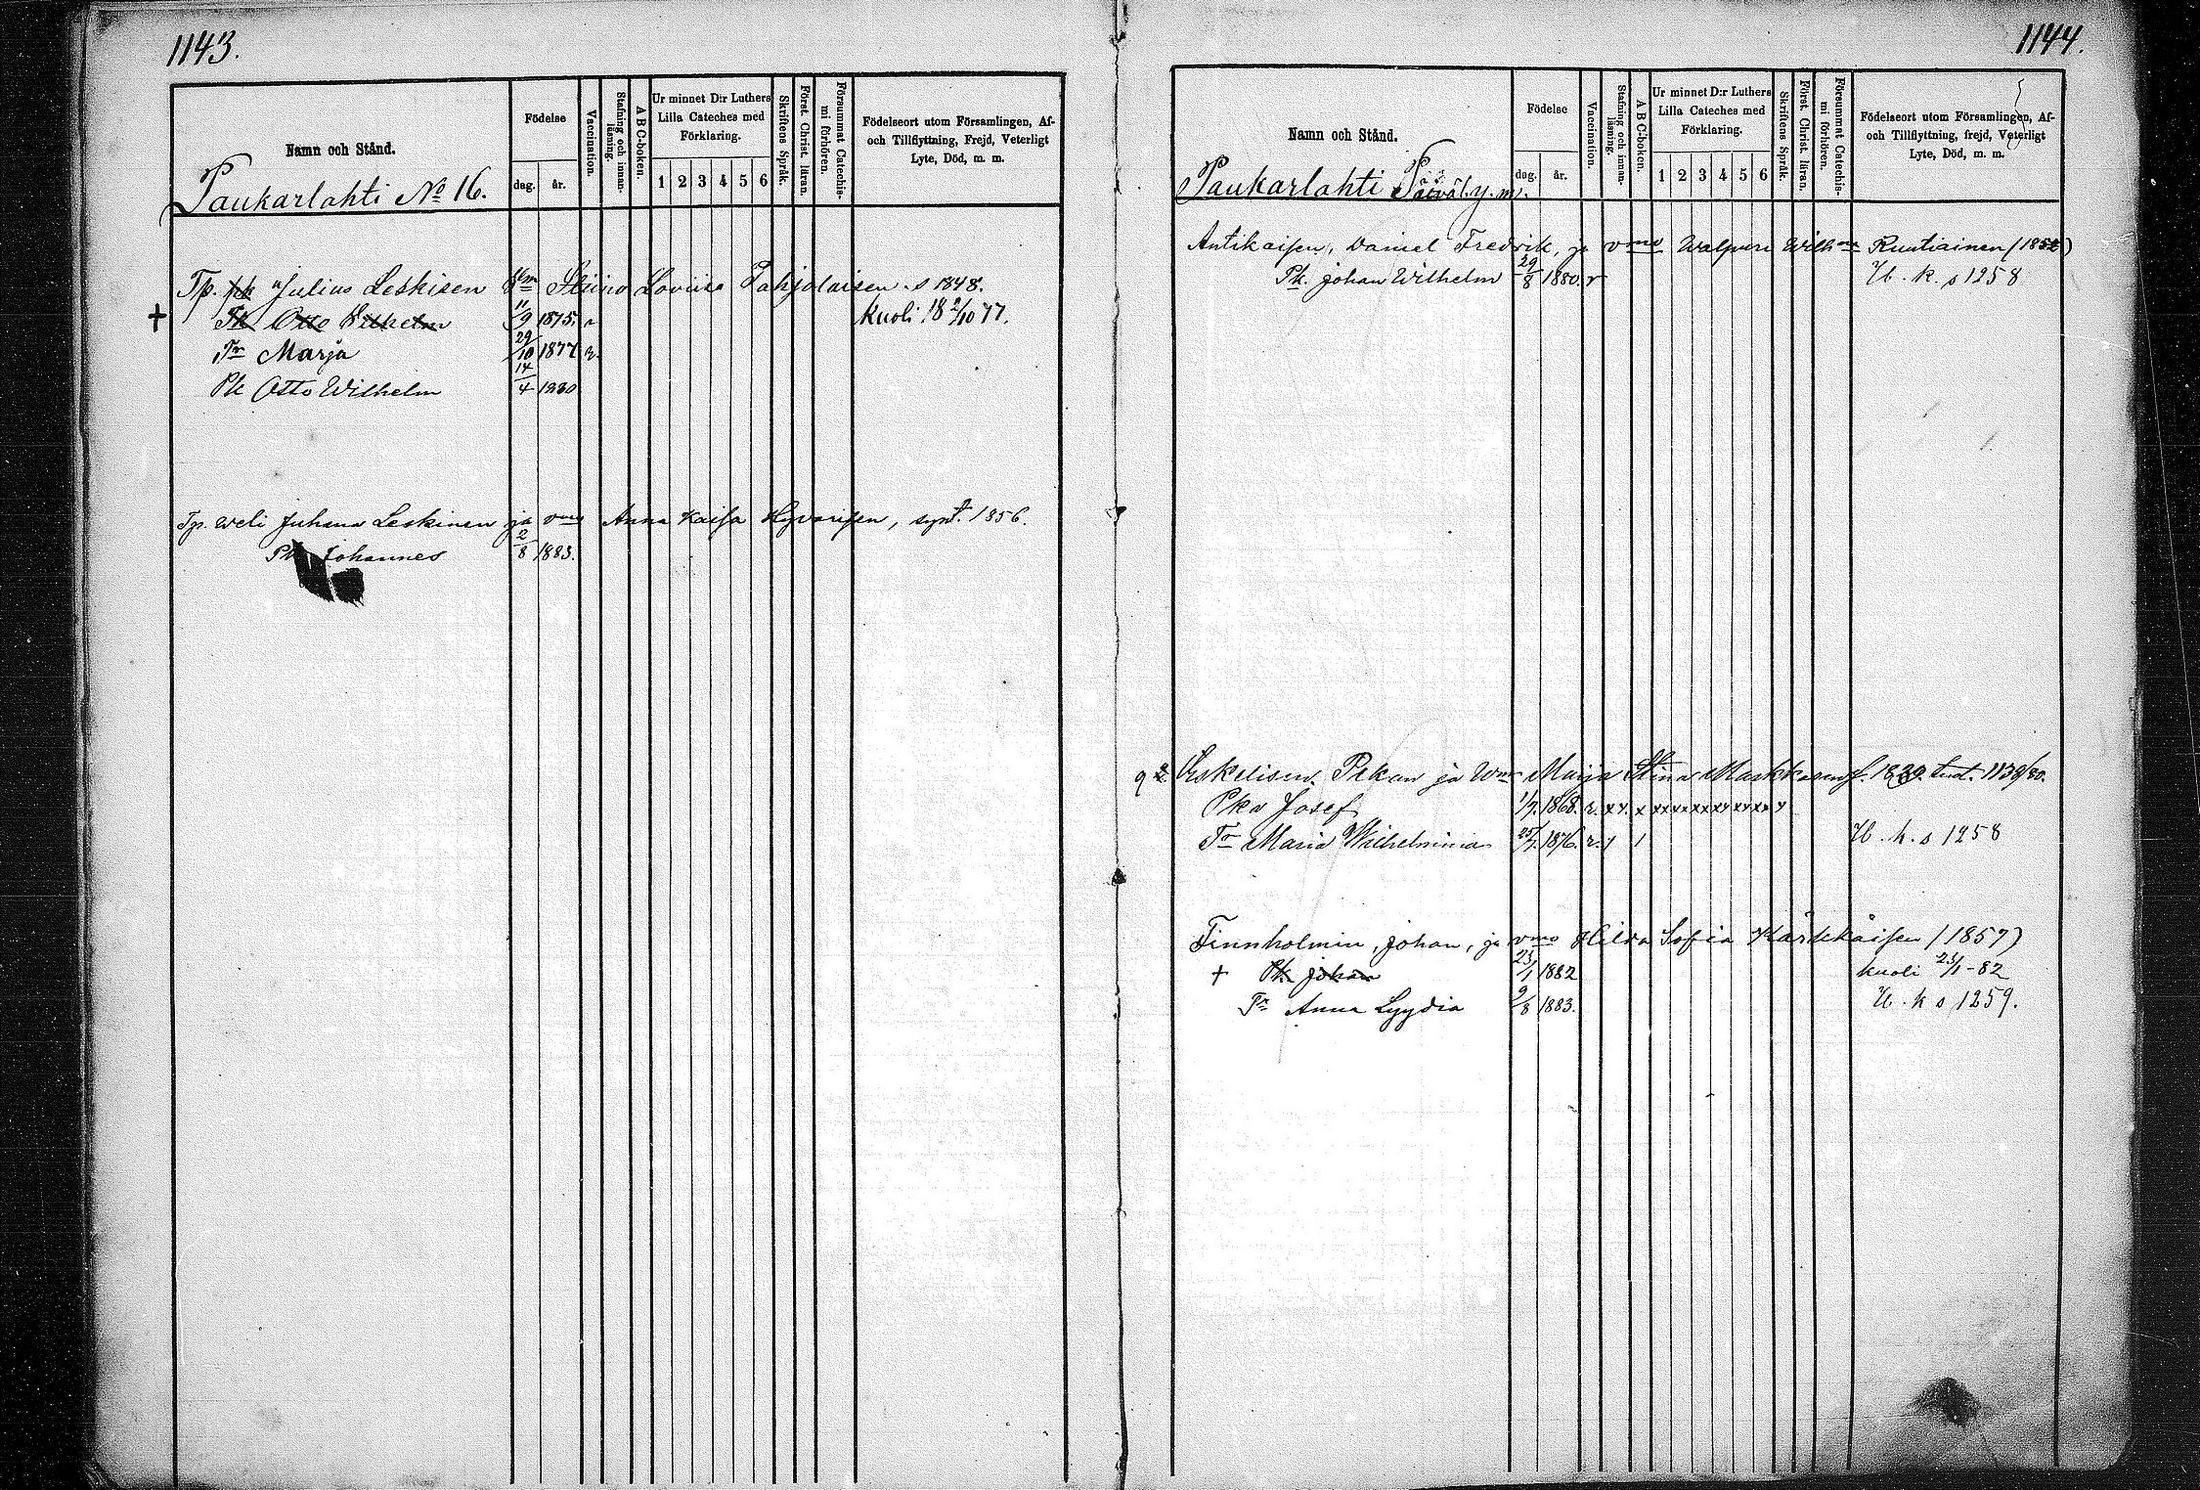 1143.
Namn och Stånd.
Paukarlahti No 16.
Födelse
dag. år.
Vaccination.
Stafning och innan-läsning.
A B C-boken.
Ur minnet D:r Luthers
Lilla Cateches med
Förklaring.
1 2 3 4 5 6
Skriftens Språk.
Först. Christ. läran.
Försummat Catechis-mi förhören.
Födelseort utom Församlingen, Af-
och Tillflyttning, Frejd, Veterligt
Lyte, Död, m. m.
Tp. Julius Leskisen Vm Stiina Loviisa Pohjolaisen s 1848.
Pk Otto Wilhelm 11/9 1875. r kuoli 18 2/10 77.
Tr Marja 29/10 1877 r.
Pk Otto Wilhelm 14/4 1880
Tp. weli Juhana Leskinen ja vmo Anna Kaisa Hyvärisen, synt. 1856.
Pk Johannes 2/8 1883.
1144.
Namn och Stånd.
Paukarlahti Päiväl. y. m.
Födelse
dag. år.
Vaccination.
Stafning och innan-läsning.
A B C-boken.
Ur minnet D:r Luthers
Lilla Cateches med
Förklaring.
1 2 3 4 5 6
Skriftens Språk.
Först. Christ. läran.
Försummat Catechis-mi förhören.
Födelseort utom Församlingen, Af-
och Tillflyttning, frejd, Veterligt
Lyte, Död, m. m.
Antikaisen, Daniel Fredrik, ja vmo Walpuri Wilhna Ruutiainen (1852)
Pk. Johan Wilhelm 29/8 1880. r U. k. s 1258
Eskelisen Pekan ja Wm Maija Stina Markkasen s. 1839 1138/80.
Pka Josef 1/7. 1868. r. x x. x xx xx xx xx xx xx x
Tr Maria Wilhelmina 25/7. 1876. r. 1 1 U. k. s 1258
Finnholmin, Johan, ja vmo Hilda Sofia Kärkkäisen (1857)
+ Pk Johan 23/1 1882 kuoli 23/1-82
Tr Anna Lyydia 9/8 1883. U. k s 1259.